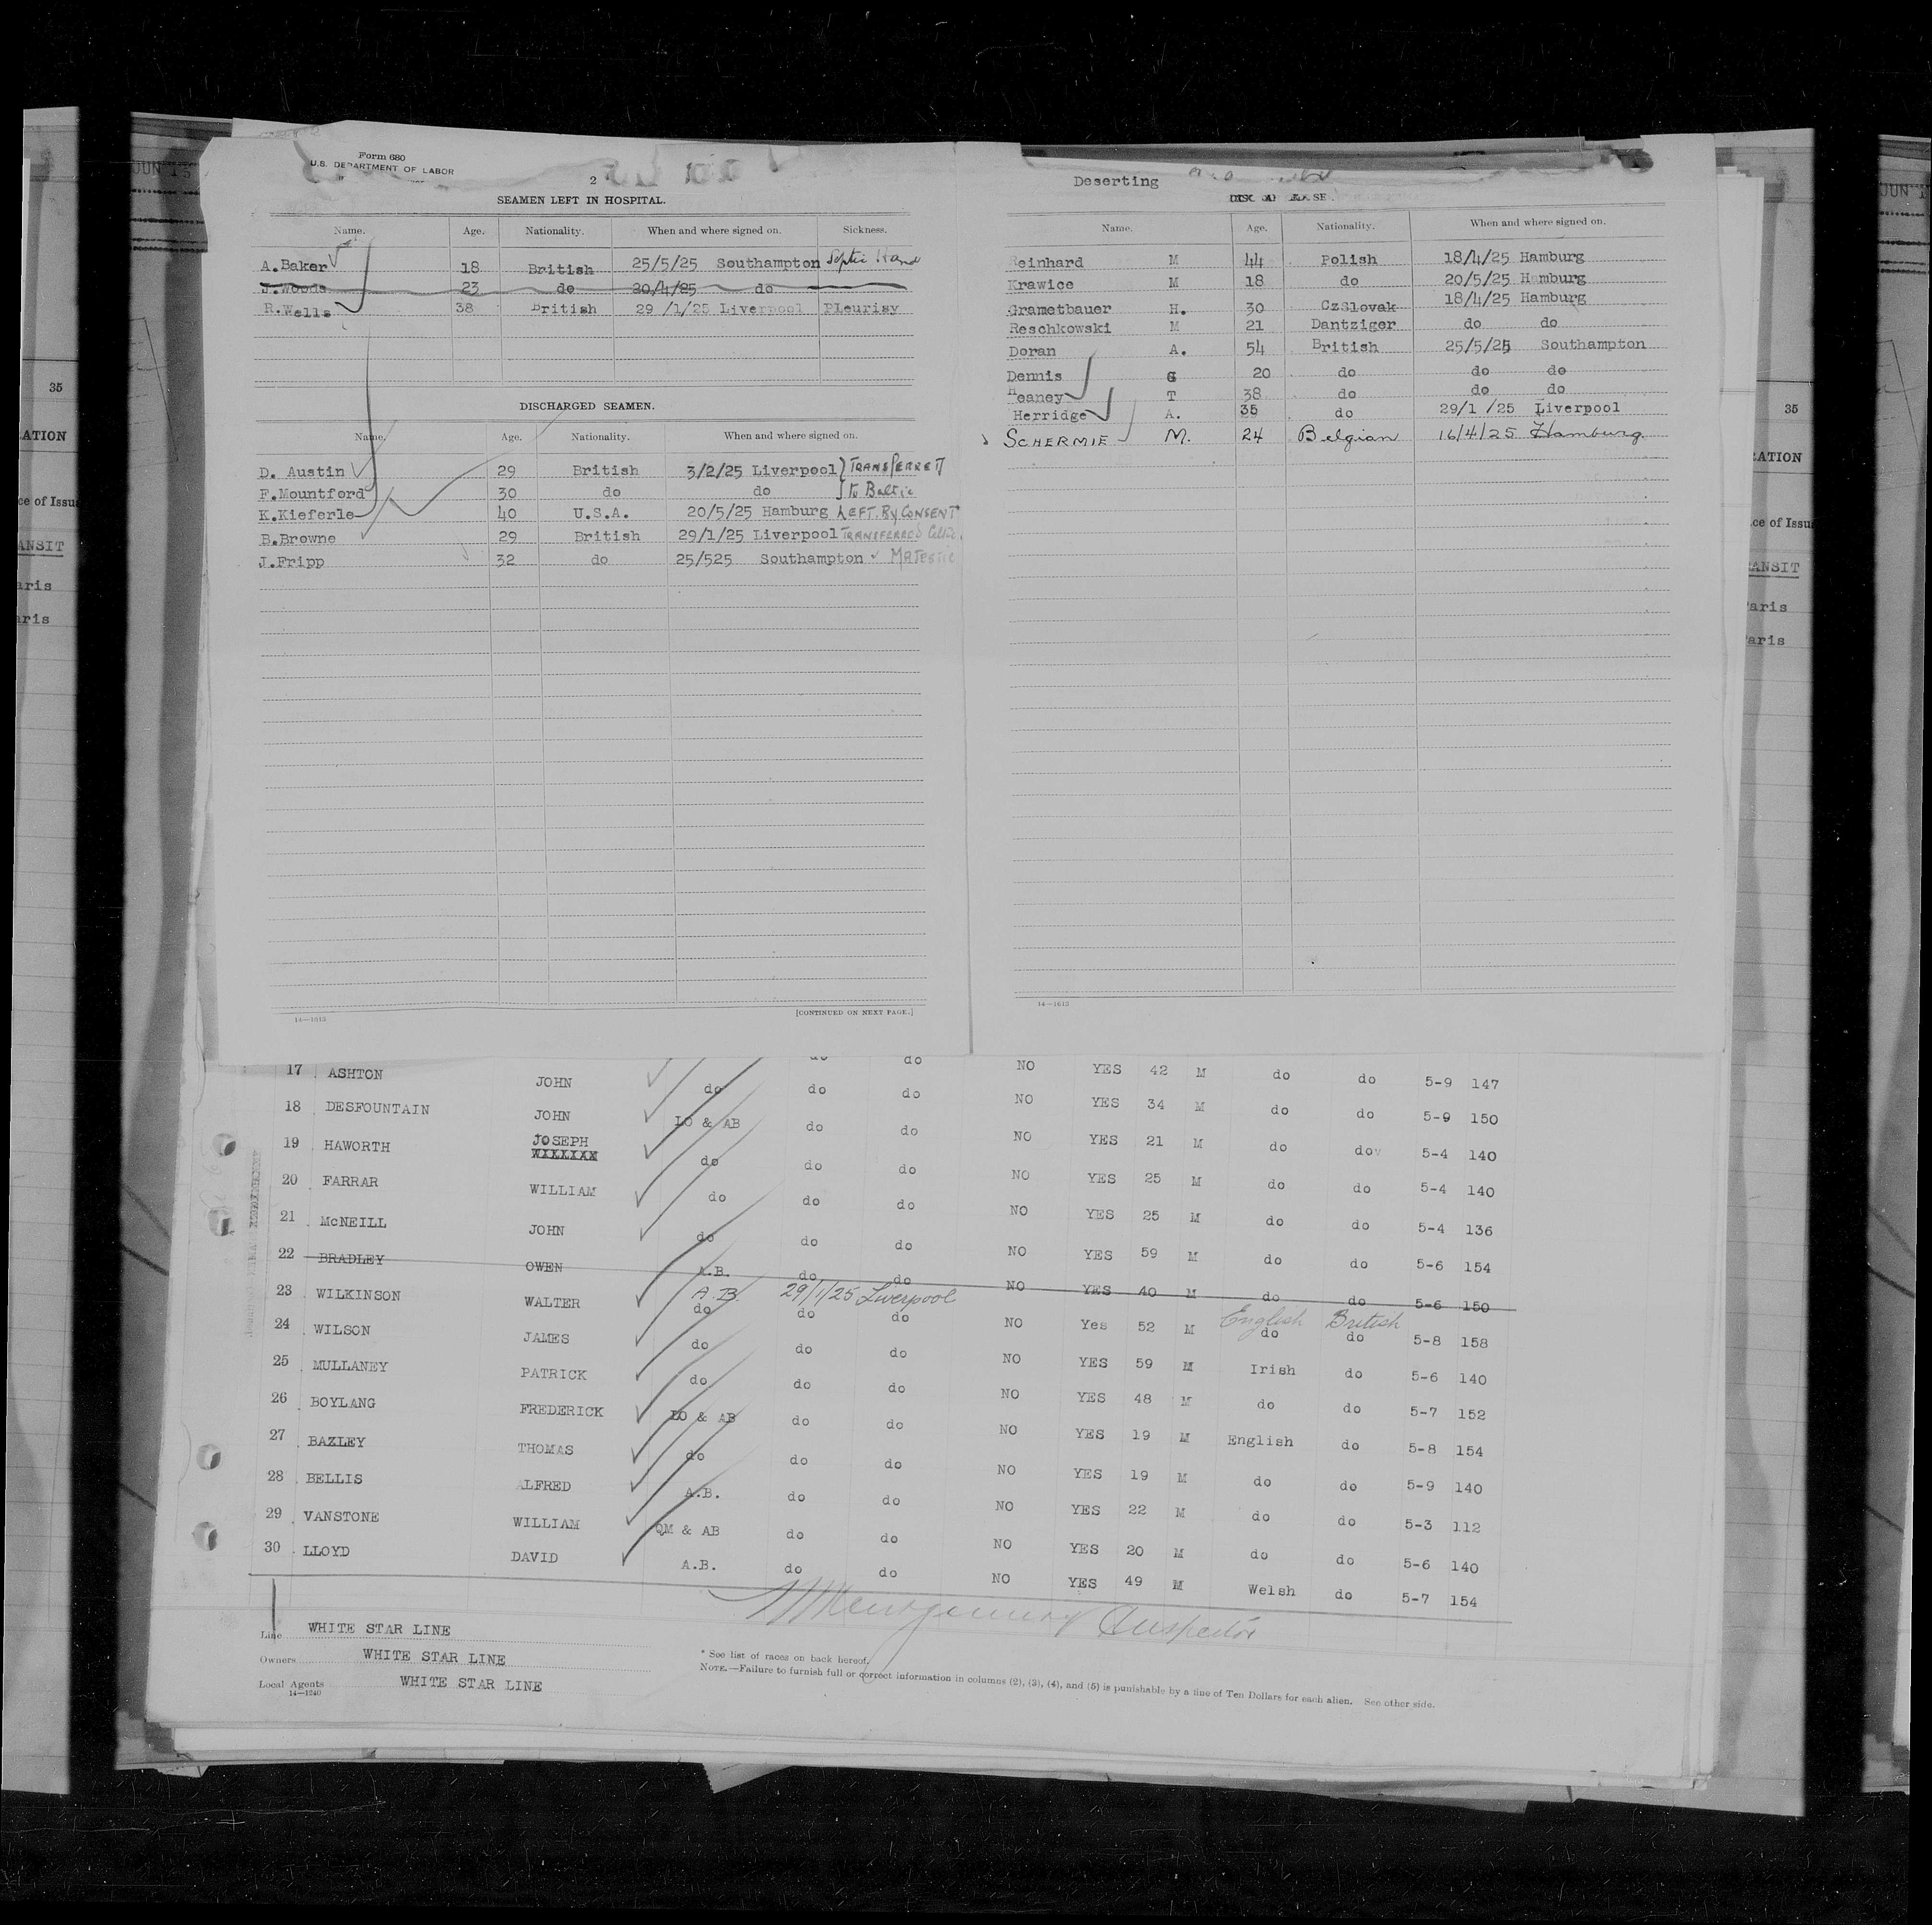 Form 680
U.S. DEPARTMENT OF LABOR
2
SEAMEN LEFT IN HOSPITAL.
Name. Age. Nationality. When and where signed on. Sickness.
A.Baker 18 British 25/5/25 Southampton Septic Hand
J.Woods 23 do 30/4/25 do
R.Wells 38 British 29 /1/25 Liverpool PLeurisy
DISCHARGED SEAMEN.
Name. Age. Nationality. When and where signed on.
D. Austin 29 British 3/2/25 Liverpool } TRANSFERRED
F.Mountford 30 do do } to Baltic
K.Kieferle 40 U.S.A. 20/5/25 Hamburg LEFT. By CONSENT
B.Browne 29 British 29/1/25 Liverpool TRANSFERRED Celtic.
J.Fripp 32 do 25/525 Southampton MAJESTIC
14—1613 [CONTINUED ON NEXT PAGE.]
Deserting
Name. Age. Nationality. When and where signed on.
Reinhard M 44 Polish 18/4/25 Hamburg
Krawice M 18 do 20/5/25 Hamburg
Grametbauer H. 30 CzSlovak 18/4/25 Hamburg
Reschkowski M 21 Dantziger do do
Doran A. 54 British 25/5/25 Southampton
Dennis G 20 do do do
Heaney T 38 do do do
Herridge A. 35 do 29/1 /25 Liverpool
SCHERMIE M. 24 Belgian 16/4/25 Hamburg.
14—1613
do do
17 ASHTON JOHN do do do NO YES 42 M do do 5-9 147
18 DESFOUNTAIN JOHN LO & AB do do NO YES 34 M do do 5-9 150
19 HAWORTH JOSEPH do do do NO YES 21 M do do 5-4 140
20 FARRAR WILLIAM do do do NO YES 25 M do do 5-4 140
21 McNEILL JOHN do do do NO YES 25 M do do 5-4 136
22 BRADLEY OWEN A.B. do do NO YES 59 M do do 5-6 154
NO YES 40 M do do 5-6 150
A.B. 29/1/25 Liverpool English British
23 WILKINSON WALTER do do do NO Yes 52 M do do 5-8 158
24 WILSON JAMES do do do NO YES 59 M Irish do 5-6 140
25 MULLANEY PATRICK do do do NO YES 48 M do do 5-7 152
26 BOYLANG FREDERICK LO & AB do do NO YES 19 M English do 5-8 154
27 BAZLEY THOMAS do do do NO YES 19 M do do 5-9 140
28 BELLIS ALFRED A.B. do do NO YES 22 M do do 5-3 112
29 VANSTONE WILLIAM QM & AB do do NO YES 20 M do do 5-6 140
30 LLOYD DAVID A.B. do do NO YES 49 M Welsh do 5-7 154
Montgomery Inspector
Line WHITE STAR LINE
Owners WHITE STAR LINE
Local Agents WHITE STAR LINE
14—1240
* See list of races on back hereof.
NOTE.—Failure to furnish full or correct information in columns (2), (3), (4), and (5) is punishable by a fine of Ten Dollars for each alien. See other side.
JUN 15
35
ATION
ce of Issu
ANSIT
aris
aris
JUN 1
35
ATION
ce of Issu
ANSIT
Paris
Paris